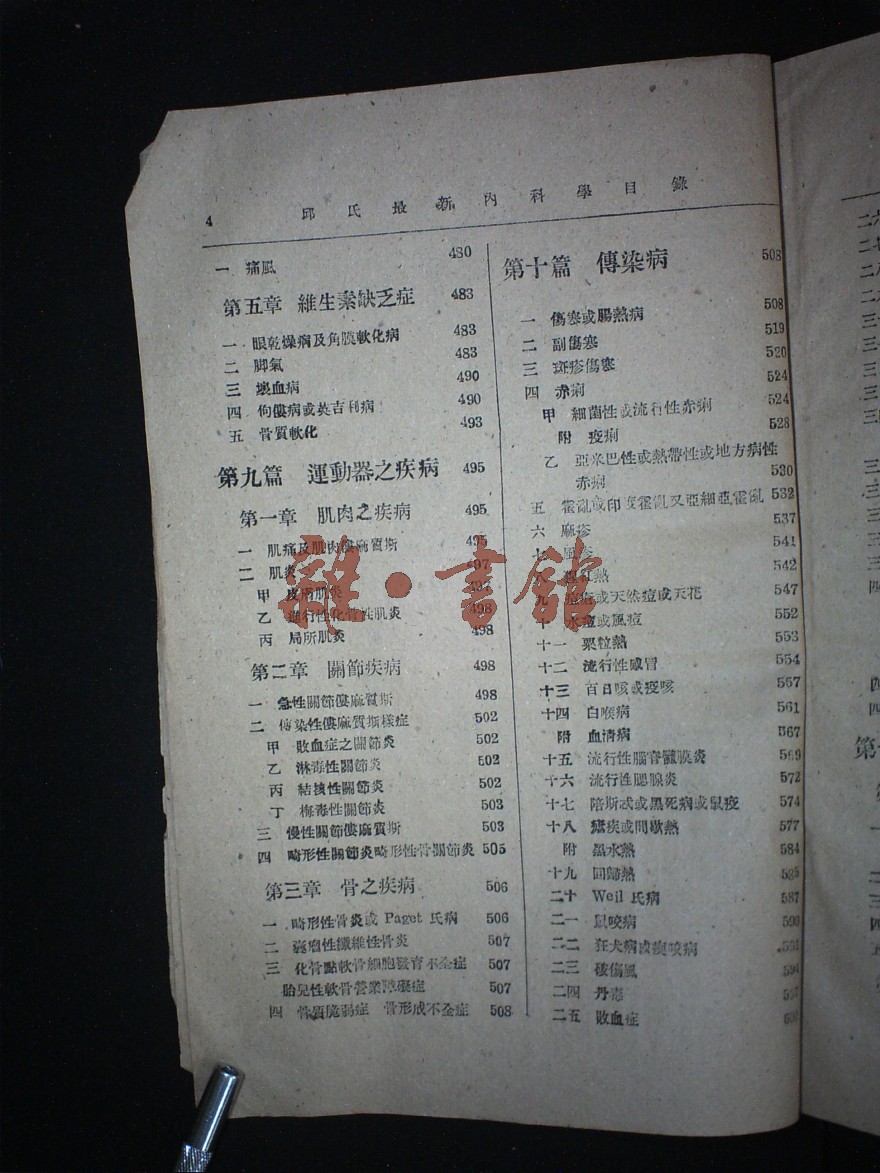 4
邱氏最新內科學目錄
一 痛風 480
第五章 維生素缺乏症 483
一 眼乾燥病及角膜軟化病 483
二 脚氣 483
三 壞血病 490
四 佝僂病或英吉利病 490
五 骨質軟化 493
第九篇 運動器之疾病 495
第一章 肌肉之疾病 495
一 肌痛及肌肉僂麻質斯 495
二 肌炎 497
甲 皮膚肌炎 497
乙 進行性化骨性肌炎 498
丙 局所肌炎 498
第二章 關節疾病 498
一 急性關節僂麻質斯 498
二 傳染性僂麻質斯樣症 502
甲 敗血症之關節炎 502
乙 淋毒性關節炎 502
丙 結核性關節炎 502
丁 梅毒性關節炎 503
三 慢性關節僂麻質斯 503
四 畸形性關節炎畸形性骨關節炎 505
第三章 骨之疾病 506
一 畸形性骨炎或 Paget 氏病 506
二 囊瘤性纖維性骨炎 507
三 化骨點軟骨細胞發育不全症 507
胎兒性軟骨營業障礙症 507
四 骨質脆弱症 骨形成不全症 508
第十篇 傳染病 508
一 傷寒或腸熱病 508
二 副傷寒 519
三 斑疹傷寒 520
四 赤痢 524
甲 細菌性或流行性赤痢 524
附 疫痢 528
乙 亞米巴性或熱帶性或地方病性
赤痢 530
五 霍亂或印度霍亂又亞細亞霍亂 532
六 麻疹 537
七 風疹 541
八 猩紅熱 542
九 痘瘡或天然痘或天花 547
十 水痘或風痘 552
十一 粟粒熱 553
十二 流行性感冒 554
十三 百日咳或疫咳 557
十四 白喉病 561
附 血清病 567
十五 流行性腦脊髓膜炎 569
十六 流行性腮腺炎 572
十七 陪斯忒或黑死病或鼠疫 574
十八 瘧疾或間歇熱 577
附 黑水熱 584
十九 回歸熱 585
二十 Weil 氏病 587
二一 鼠咬病 590
二二 狂犬病或瘈咬病
二三 破傷風 594
二四 丹毒
二五 敗血症
雜·書館